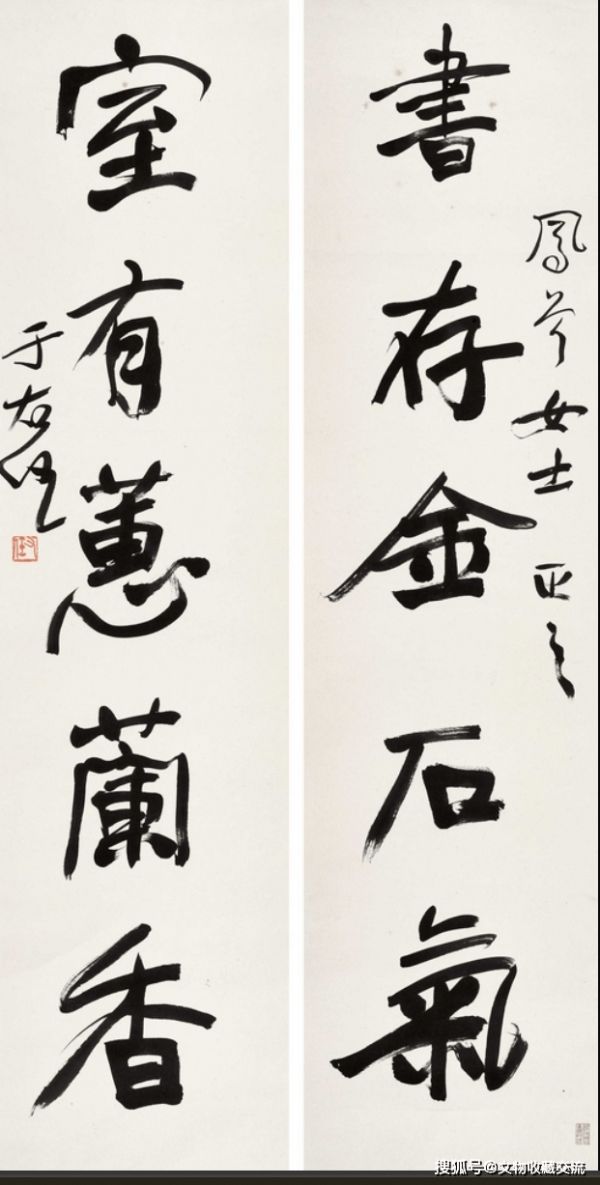 鳳女士 正之
書存金石氣
室有蕙蘭香
于右任
右任
搜狐号@文物收藏交流